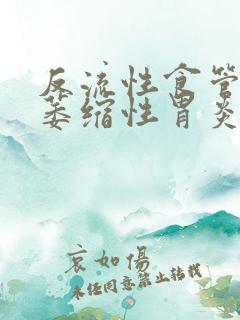 反流性食管
萎缩性胃炎
哀如傷
未经同意禁止转载